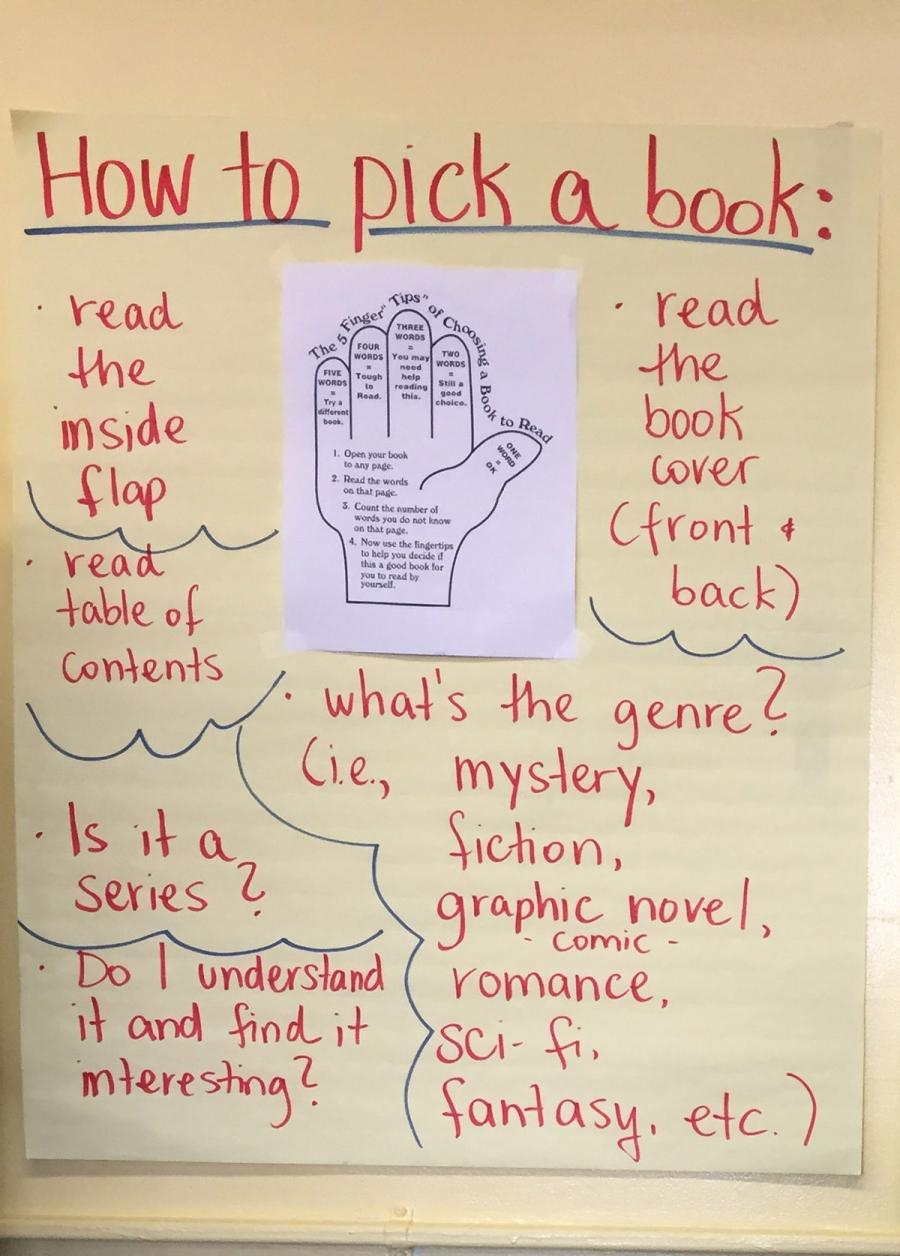 How to pick a book:
· read
the
inside
flap
· read
table of
contents
· Is it a
series?
· Do I understand
it and find it
interesting?
The 5 Finger "Tips" of Choosing a Book to Read
FIVE
WORDS
=
Try a
different
book.
FOUR
WORDS
=
Tough
to
Read.
THREE
WORDS
=
You may
need
help
reading
this.
TWO
WORDS
=
Still a
good
choice.
ONE
WORD
=
OK
1. Open your book
to any page.
2. Read the words
on that page.
3. Count the number of
words you do not know
on that page.
4. Now use the fingertips
to help you decide if
this a good book for
you to read by
yourself.
· read
the
book
cover
(front &
back)
· what's the genre?
(i.e., mystery,
fiction,
graphic novel,
- comic -
romance,
sci-fi,
fantasy, etc.)